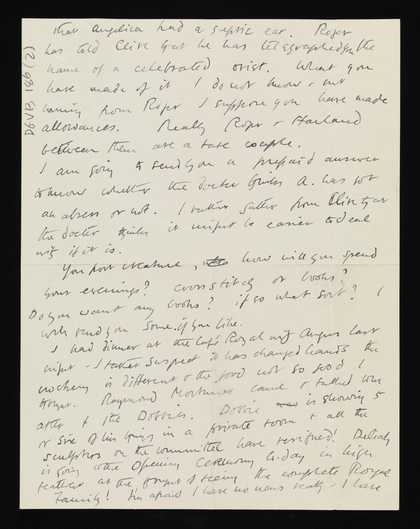 that Angelica had a septic ear. Roger
has told Clive that he has telegraphed for the
name of a celebrated orist. What you
have made of it I do not know & not
coming from Roger I suppose you have made
allowances. Really Roger & Harland
between them are a rare couple.
I am going to send you a prepaid answer
to know whether the doctor thinks A. has got
an absess or not. I rather gather from Clive that
the doctor thinks it might be easier to deal
with if it is.
You poor creature, how will you spend
your evenings? cross stitch or books?
Do you want any books? if so what sort? I
will send you some if you like.
I had dinner at the Café Royal with Angus last
night - I rather suspect it has changed hands the
crockery is different & the food not so good I
thought. Raymond Mortimer came & talked
after & the Dobbies. Dobbie is showing 5
or six of his things in a private room & all the
sculptors on the committee have resigned!
is going to the Opening Ceremony to-day in high
feather at the thought of seeing the complete Royal
Family! I'm afraid I have no news really - I have
D&VB 186 (2)